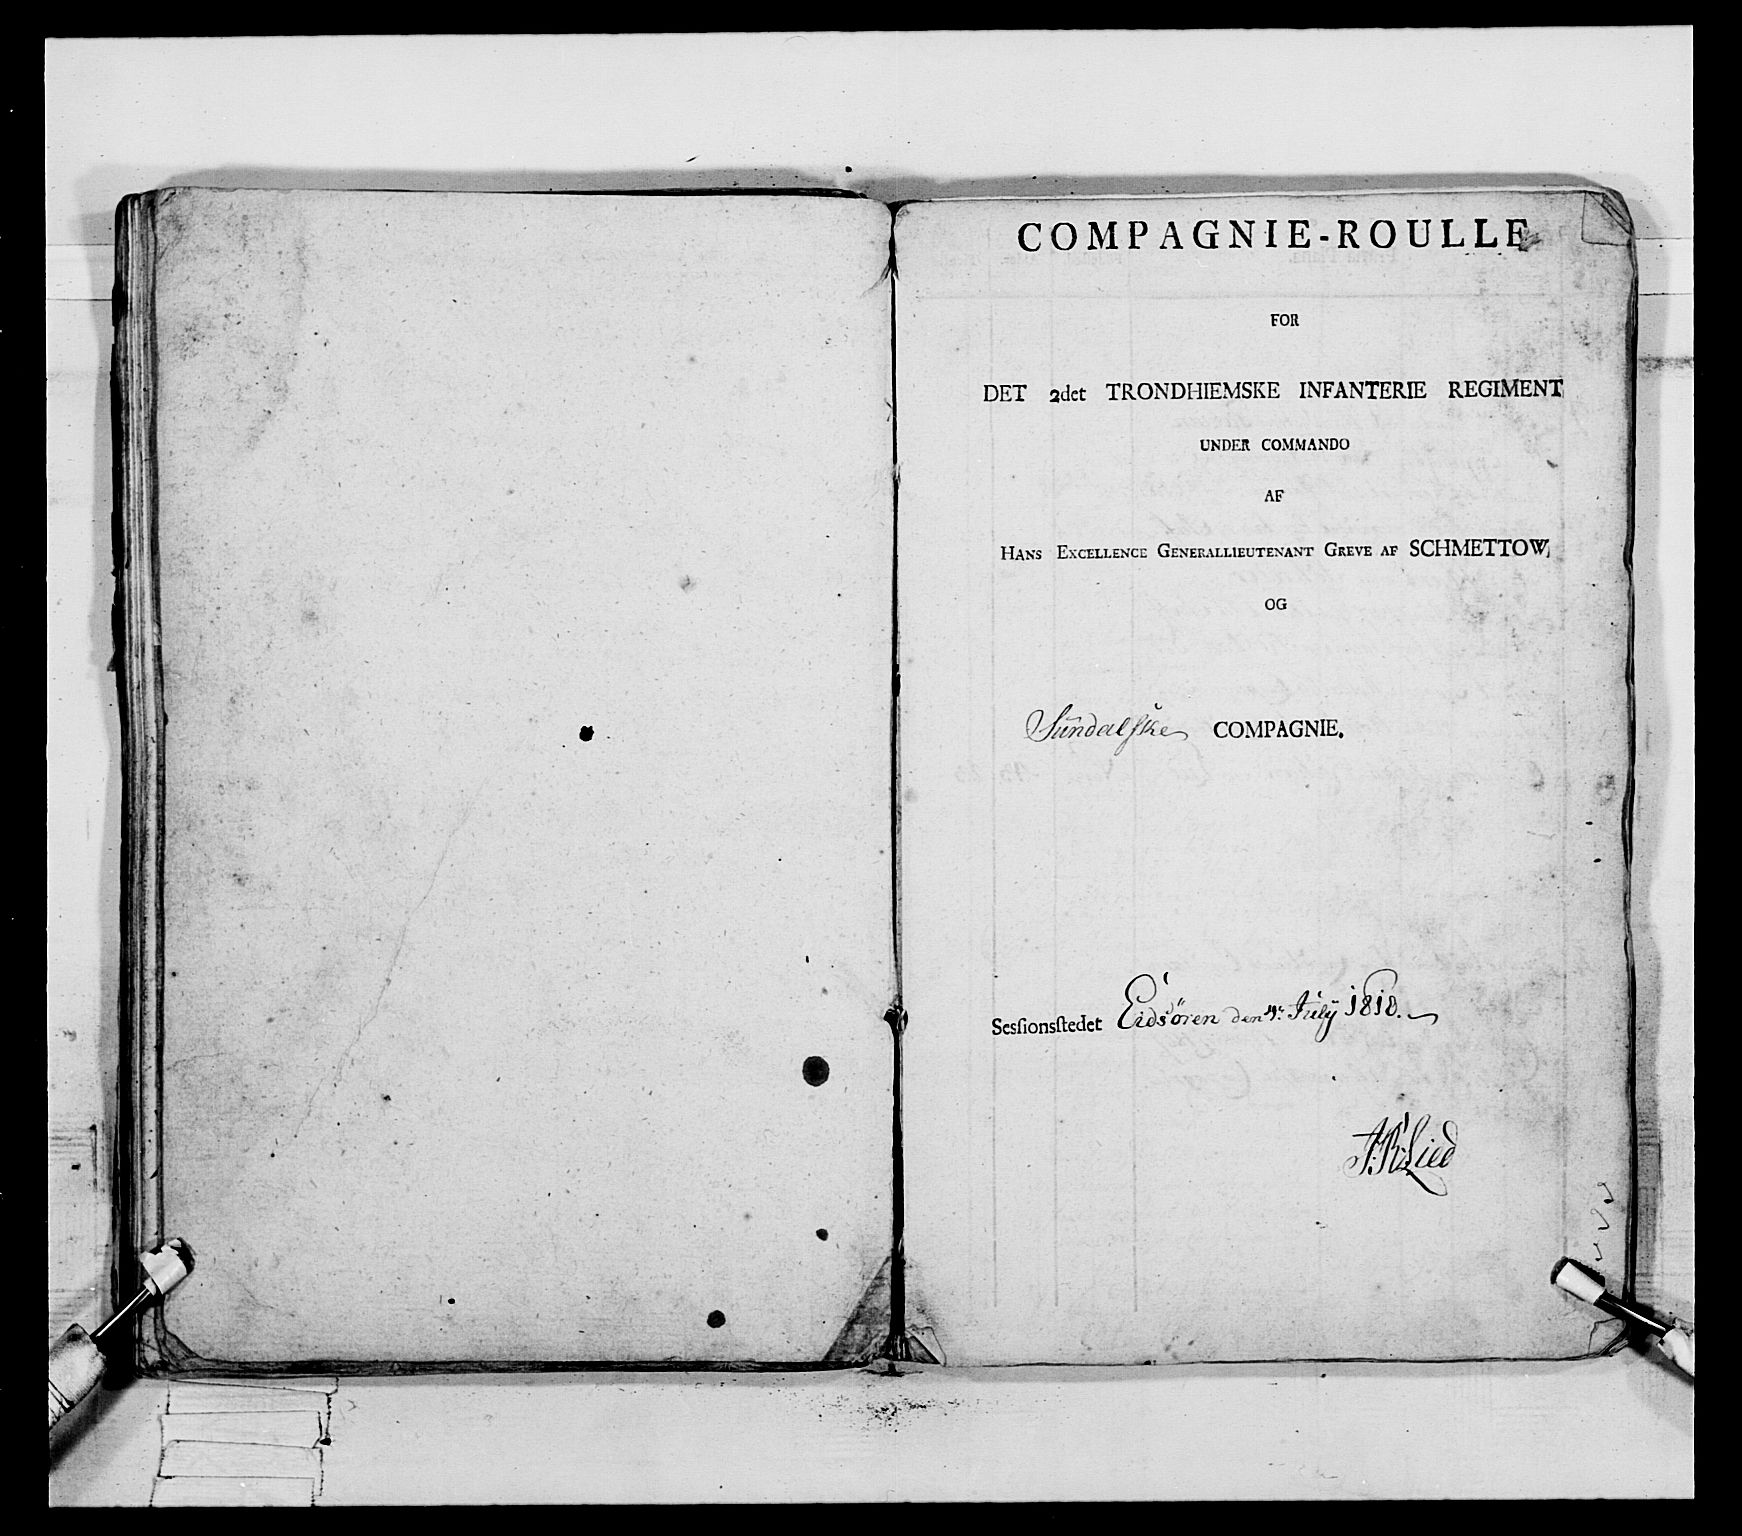 COMPAGNIE-ROULLE
FOR
DET 2det TRONDHIEMSKE INFANTERIE REGIMENT
UNDER COMMANDO
AF
HANS EXCELLENCE GENERALLIEUTENANT GREVE AF SCHMETTOW,
OG
Sundalske COMPAGNIE.
Sesſionsſtedet Eidsören den 4: July 1810.